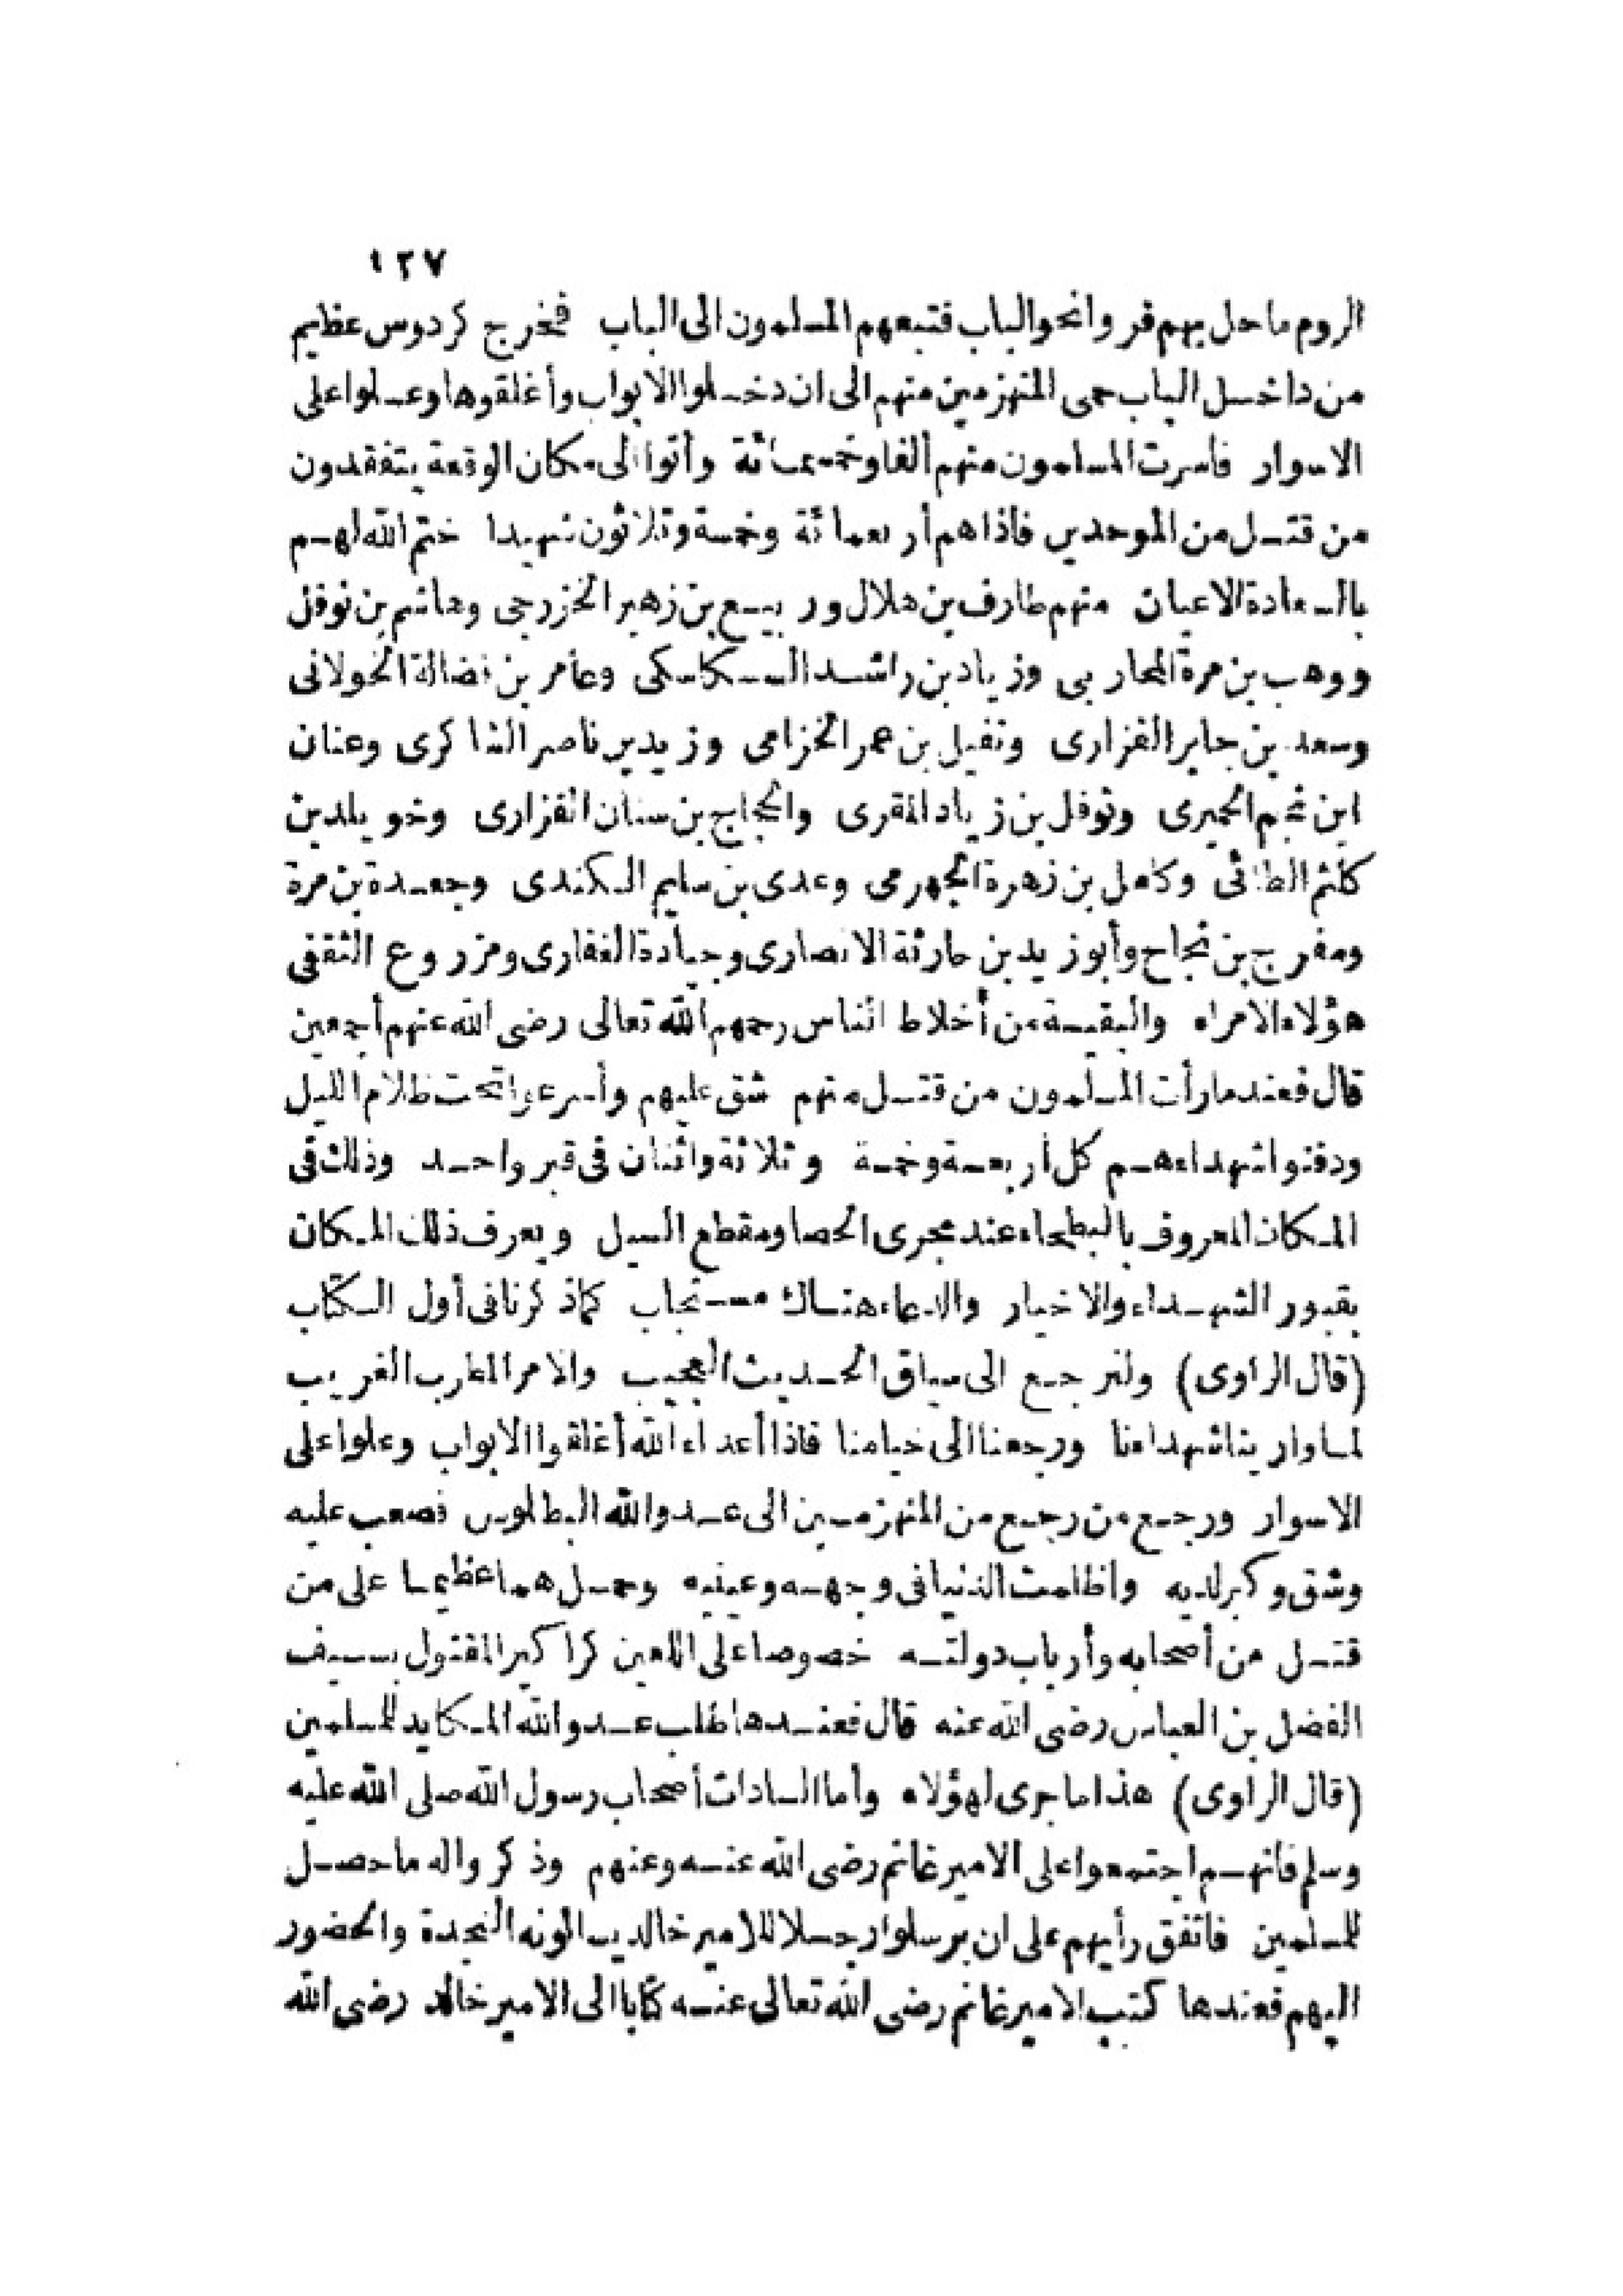 ١٢٧
الروم ما حل بهم فروا نحو الباب فتبعهم المسلمون الى الباب فخرج كردوس عظيم
من داخل الباب حمى المنهزمين منهم الى ان دخلوا الابواب وأغلقوها وعلوا على
الاسوار فأسرت المسلمون منهم ألفا وخمسمائة وأتوا الى مكان الوقعة يتفقدون
من قتل من الموحدين فاذا هم أربعمائة وخمسة وثلاثون شهيدا ختم الله لهم
بالسعادة الاعيان منهم طارف بن هلال وربيع بن زهير الخزرجى وهاشم بن نوفل
ووهب بن مرة المحاربى وزياد بن راشد السكاسكى وعامر بن فضالة الخولانى
وسعد بن جابر الفزارى ونفيل بن عمر الخزامى وزيد بن ناصر الشاكرى وعنان
ابن نجم الحميرى ونوفل بن زياد المقرى والحجاج بن سنان الفزارى وخويلد بن
كلثم الطائى وكامل بن زهرة الجهرمى وعدى بن سليم الكندى وجعدة بن مرة
ومفرج بن نجاح وأبو زيد بن حارثة الانصارى وجيادة الغفارى ومزروع الثقفى
هؤلاء الامراء والبقية من أخلاط الناس رحمهم الله تعالى رضى الله عنهم أجمعين
قال فعندما رأت المسلمون من قتل منهم شق عليهم وأسرعوا تحت ظلام الليل
ودفنوا شهداءهم كل أربعة وخمسة وثلاثة واثنان فى قبر واحد وذلك فى
المكان المعروف بالبطحاء عند مجرى الحصا ومقطع السيل ويعرف ذلك المكان
بقبور الشهداء والاخيار والدعاء هناك مستجاب كما ذكرنا فى أول الكتاب
(قال الراوى) ولنرجع الى سياق الحديث العجيب والامر المطرب الغريب
لما وارينا شهداءنا ورجعنا الى خيامنا فاذا أعداء الله أغلقوا الابواب وعلوا على
الاسوار ورجع من رجع من المنهزمين الى عدو الله البطلوس فصعب عليه
وشق وكبر لديه واظلمت الدنيا فى وجهه وعينيه وحمل هما عظيما على من
قتل من أصحابه وأرباب دولته خصوصا على اللعين كراكير المقتول بسيف
الفضل بن العباس رضى الله عنه قال فعندها طلب عدو الله المكايد للمسلمين
(قال الراوى) هذا ما جرى لهؤلاء وأما السادات أصحاب رسول الله صلى الله عليه
وسلم فانهم اجتمعوا على الامير غانم رضى الله عنه وعنهم وذكروا له ما حصل
للمسلمين فاتفق رأيهم على ان يرسلوا رجلا للامير خالد يسالونه النجدة والحضور
اليهم فعندها كتب الامير غانم رضى الله تعالى عنه كتابا الى الامير خالد رضى الله